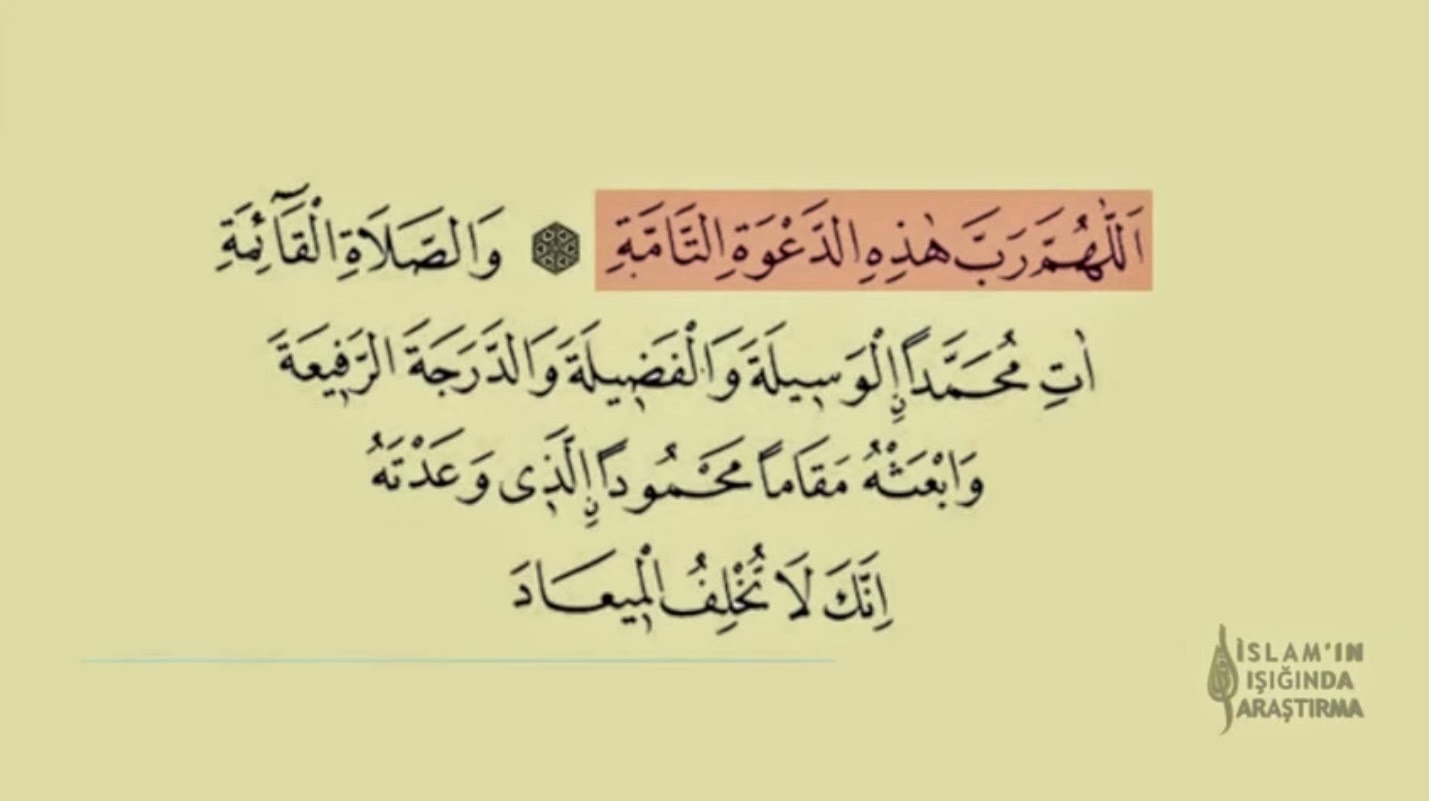 اَللّٰهُمَّ رَبَّ هٰذِهِ الدَّعْوَةِ التَّامَّةِ ۞ وَالصَّلَاةِ الْقَٓائِمَةِ
اٰتِ مُحَمَّداًنِ الْوَسٖيلَةَ وَالْفَضٖيلَةَ وَالدَّرَجَةَ الرَّفٖيعَةَ
وَابْعَثْهُ مَقَاماً مَحْمُوداًنِ الَّذٖى وَعَدْتَهُ
اِنَّكَ لَا تُخْلِفُ الْمٖيعَادَ
İSLAM'IN
IŞIĞINDA
ARAŞTIRMA